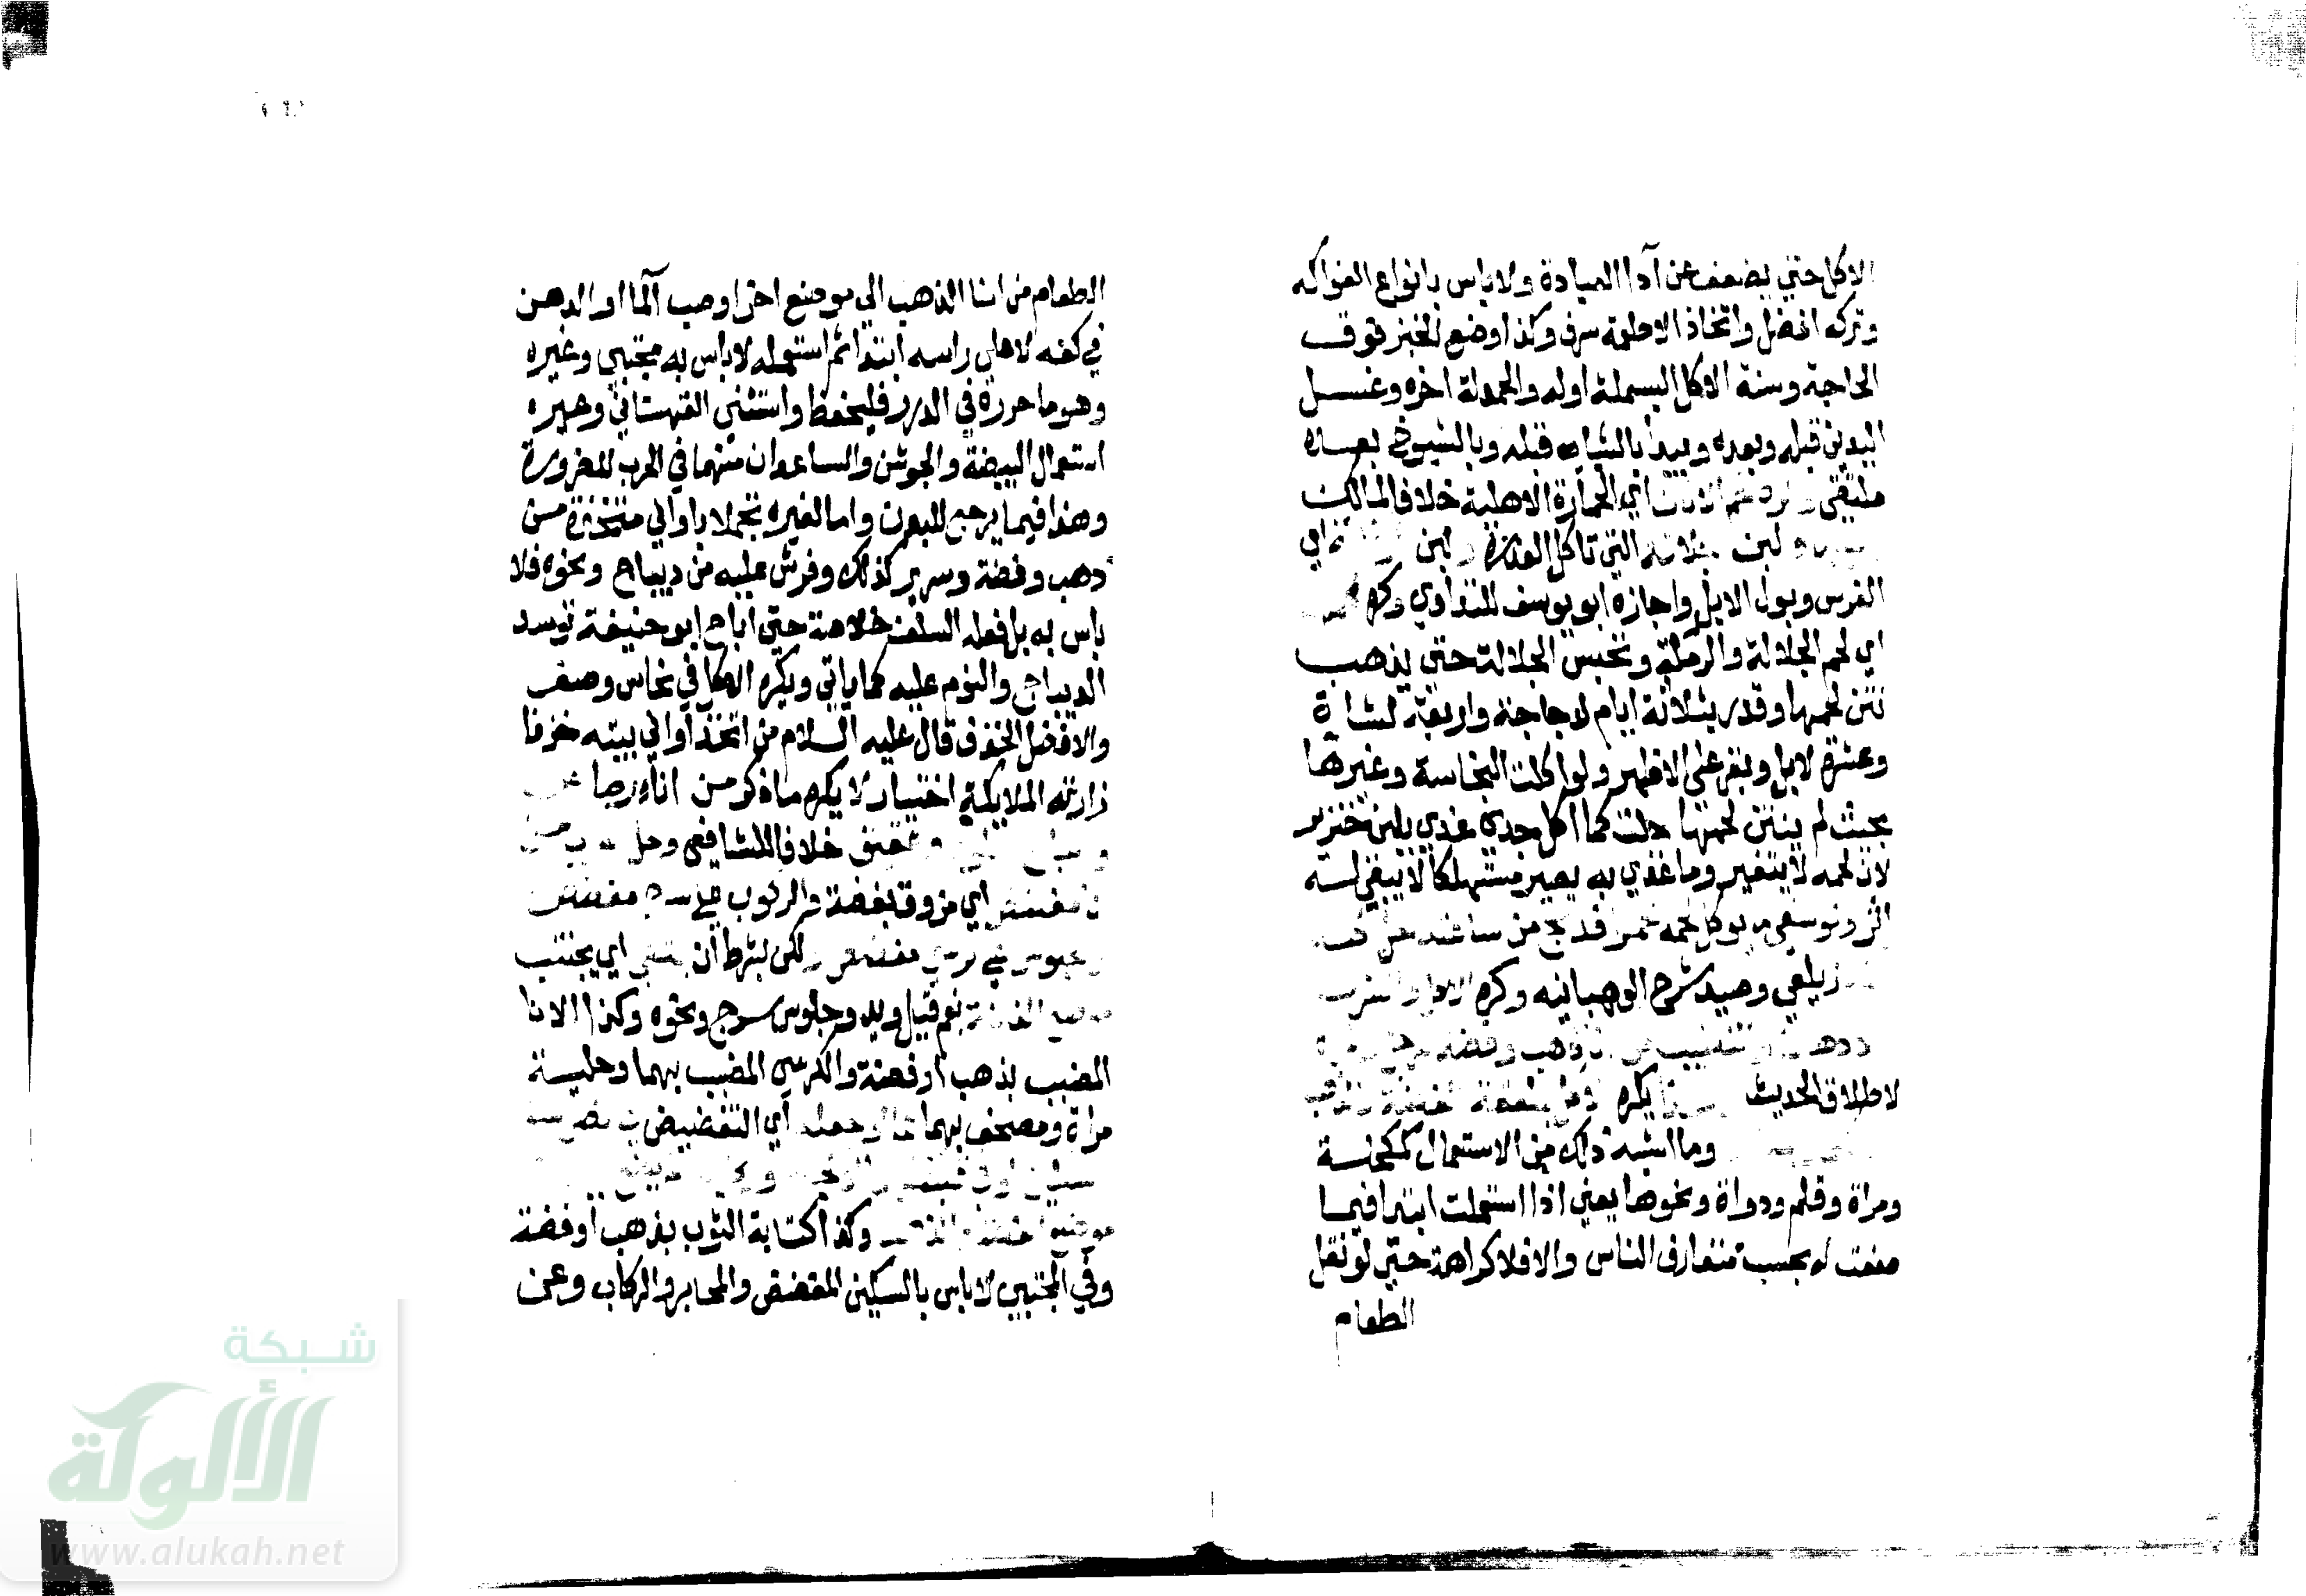 الاكل حتي يضعف عن آدا العبادة ولا باس بانواع الفواكه
وتركه افضل واتخاذ الاطعمة سرف وكذا وضع الخبز فوق
الحاجة وسنة الاكل البسملة اوله والحمدلة اخره وغسل
اليدين قبله وبعده ويبدا بالشباب قبله وبالشيوخ بعده
ملتقي وكره لحم الاتان اي الحمارة الاهلية خلافا لمالك
ولبن الجلالة التي تاكل العذرة ولبن
الفرس وبول الابل واجازه ابو يوسف للتداوي وكره
اي لحم الجلالة والرمكة وتحبس الجلالة حتي يذهب
نتن لحمها وقدر بثلاثة ايام لدجاجة واربعة لشاة
وعشرة لابل وبقر علي الاظهر ولو اكلت النجاسة وغيرها
بحيث لم ينتن لحمها حلت كما اكل جدي غذي بلبن خنزير
لان لحمه لا يتغير وما غذي به يصير مستهلكا لا يبقي له
اثر ولو سقي ما يوكل لحمه خمرا فذبح من ساعته حل
زيلعي وصيد شرح الوهبانيه وكره الاكل والشرب
ذهب وفضة
لاطلاق الحديث يكره الاكل بملعقة
وما اشبه ذلك من الاستعمال كمكحلة
ومراة وقلم ودواة ونحوها يعني اذا استعملت ابتدا فيما
صنعت له بحسب متعارف الناس والا فلا كراهة حتي لو نقل
الطعام
الطعام من انا الذهب الي موضع اخر او صب الما او الدهن
في كفه لا علي راسه ابتدا ثم استعمله لا باس به مجتبي وغيره
وهو ما حرره في الدرر فليحفظ واستثني القهستاني وغيره
استعمال البيضة والجوشن والساعدان منهما في الحرب للضرورة
وهذا فيما يرجع للبدن واما لغيره تجملا باواني متخذة من
ذهب وفضة وسرير كذلك وفرش عليه من ديباج ونحوه فلا
باس به بل فعله السلف خلاصة حتي اباح ابو حنيفة توسد
الديباج والنوم عليه كما ياتي ويكره الاكل في نحاس وصفر
والافضل الخزف قال عليه السلام من اتخذ اواني بيته خزفا
زارته الملايكة اختيار لا يكره ما ذكر من اناء رصاص
وعقيق خلافا للشافعي وحل
انا مفضض اي مزوق بفضة والركوب علي سرج مفضض
والجلوس علي كرسي مفضض ولكن بشرط ان يتقي اي يجتنب
موضع الفضة بفم قيل ويد وجلوس سرج ونحوه وكذا الانا
المضبب بذهب او فضة والكرسي المضبب بهما وحلية
مراة ومصحف بهما كما لو جعله اي التفضيض

وكذا كتابة الثوب بذهب او فضة
وفي المجتبي لا باس بالسكين المفضض والمحابر والركاب وعن
شبكة
الألوكة
www.alukah.net